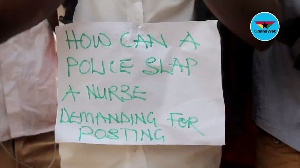 HOW CAN A
POLICE SLAP
A NURSE
DEMANDING FOR
POSTING